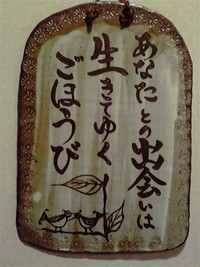 あなたとの出会いは
生きてゆく
ごほうび